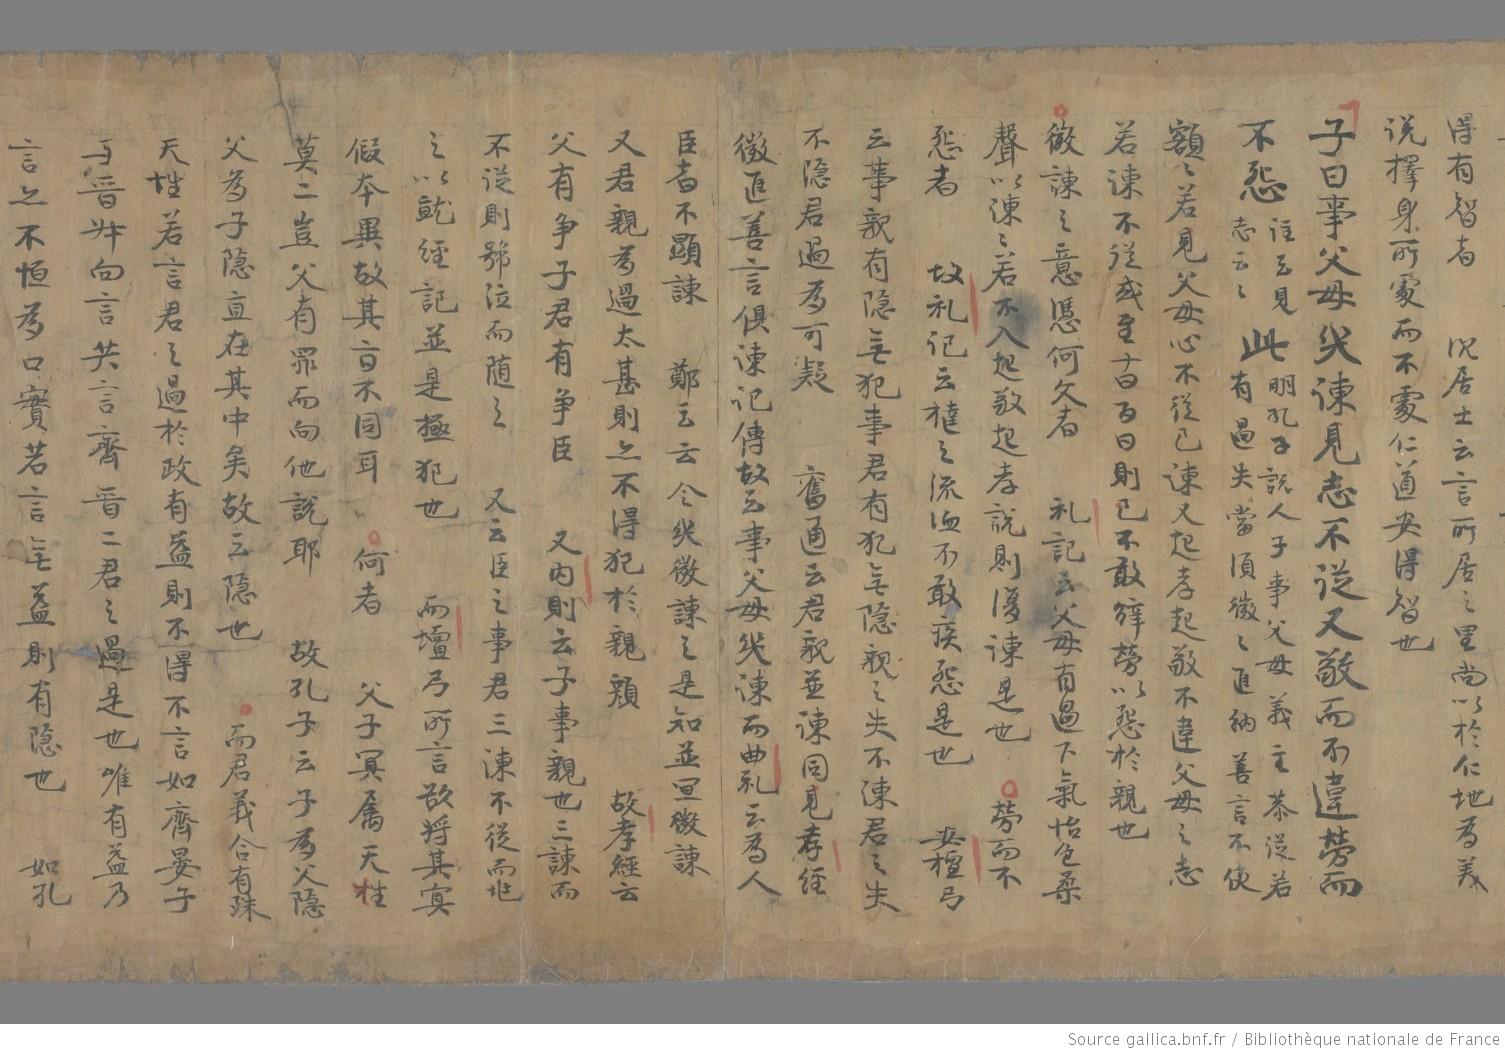 得有智者 沈居士云言所居之里尚以於仁地為美
説擇身所處而不處仁道安得智也
子曰事父母㡬諫見志不從又敬而不違勞而
不怨 注云見志云々 此 明孔子說人子事父母義主恭從若有過失當須微々進納善言不使
額々若見父母心不從己諫又起孝起敬不違父母之志
若諫不從或至十日百日則已不敢辞勞以怨於親也
微諫之意馮何文者 礼記云父母有過下氣怡色柔
聲以諫々若不入起敬起孝說則復諫是也 勞而不
怨者 故礼記云撻之流血不敢疾怨是也 安檀弓
云事親有隐無犯事君有犯無隐親之失不諫君之失
不隐君過為可疑 舊通云君親並諫同見孝経
微進善言俱諫記傳故云事父母㡬諫而曲礼云為人
臣者不顯諫 鄭玄云合㡬微諫之是知並宣微諫
又君親為過太甚則亦不得犯於親顔 故孝經云
父有争子君有争臣 又内則云子事親也三諫而
不從則號泣而随之 又云臣之事君三諫不從而逃
之以就經記並是極犯也 而壇弓所言欲將其真
假本異故其旨不同耳 何者 父子冥属天性
莫二豈父有罪而向他說耶 故孔子云子為父隐
父為子隐直在其中矣故云隐也 而君義合有殊
天性若言君之過於政有益則不得不言如齊晏子
与晋𠦑向言共言齊晋二君之過是也唯有益乃
言之不恒為口實若言無益則有隐也 如孔
Source gallica.bnf.fr / Bibliothèque nationale de France